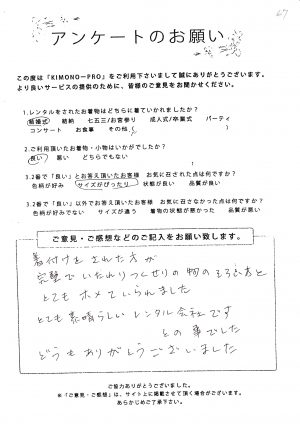 67
アンケートのお願い
この度は「KIMONO－PRO」をご利用下さいまして誠にありがとうございます。
より良いサービスの提供のために、皆様のご意見をお聞かせください。
1.レンタルをされたお着物はどちらに着ていかれましたか？
結婚式 結納 七五三/お宮参り 成人式/卒業式 パーティ
コンサート お食事 その他( )
2.ご利用頂いたお着物・小物はいかがでしたか？
良い 悪い どちらでもない
3.2番で「良い」とお答え頂いたお客様 お気に召された点は何ですか？
色柄が好み サイズがぴったり 状態が良い 品質が良い
3.2番で「良い」以外でお答え頂いたお客様 お気に召さなかった点は何ですか？
色柄が好みでない サイズが違う 着物の状態が悪かった 品質が悪い
ご意見・ご感想などのご記入をお願い致します。
着付けをされた方が
完璧でいたれりつくせりの物のそろえ方と
とてもホメていられました
とても素晴らしいレンタル会社です
との事でした
どうもありがとうございました
ご協力ありがとうございました。
※「ご意見・ご感想」は、サイト上に掲載させて頂く場合がございます。
あらかじめご了承下さい。